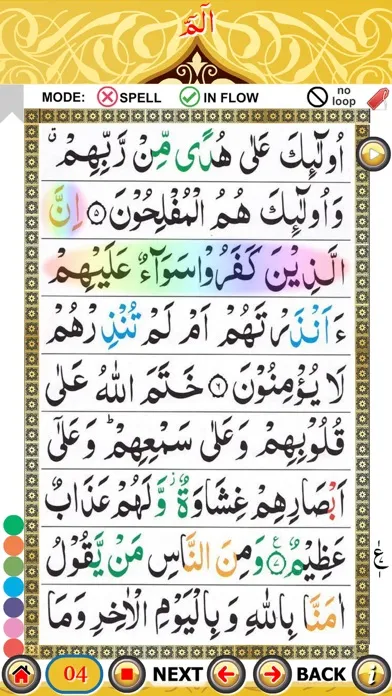 الٓمّٓ
MODE: SPELL IN FLOW no loop
اُولٰٓئِكَ عَلٰى هُدًى مِّنْ رَّبِّهِمْ ۙ
وَاُولٰٓئِكَ هُمُ الْمُفْلِحُوْنَ ۝۵ اِنَّ
الَّذِيْنَ كَفَرُوْا سَوَآءٌ عَلَيْهِمْ
ءَاَنْذَرْتَهُمْ اَمْ لَمْ تُنْذِرْهُمْ
لَا يُؤْمِنُوْنَ ۝۶ خَتَمَ اللّٰهُ عَلٰى
قُلُوْبِهِمْ وَعَلٰى سَمْعِهِمْ ؕ وَعَلٰٓى
اَبْصَارِهِمْ غِشَاوَةٌ ؗ وَّلَهُمْ عَذَابٌ
عَظِيْمٌ ۝۷ ع وَمِنَ النَّاسِ مَنْ يَّقُوْلُ
اٰمَنَّا بِاللّٰهِ وَ بِالْيَوْمِ الْاٰخِرِ وَمَا
04 NEXT BACK i